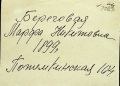 Береговая
Марфа Никитовна
1899
Потемкинская 104